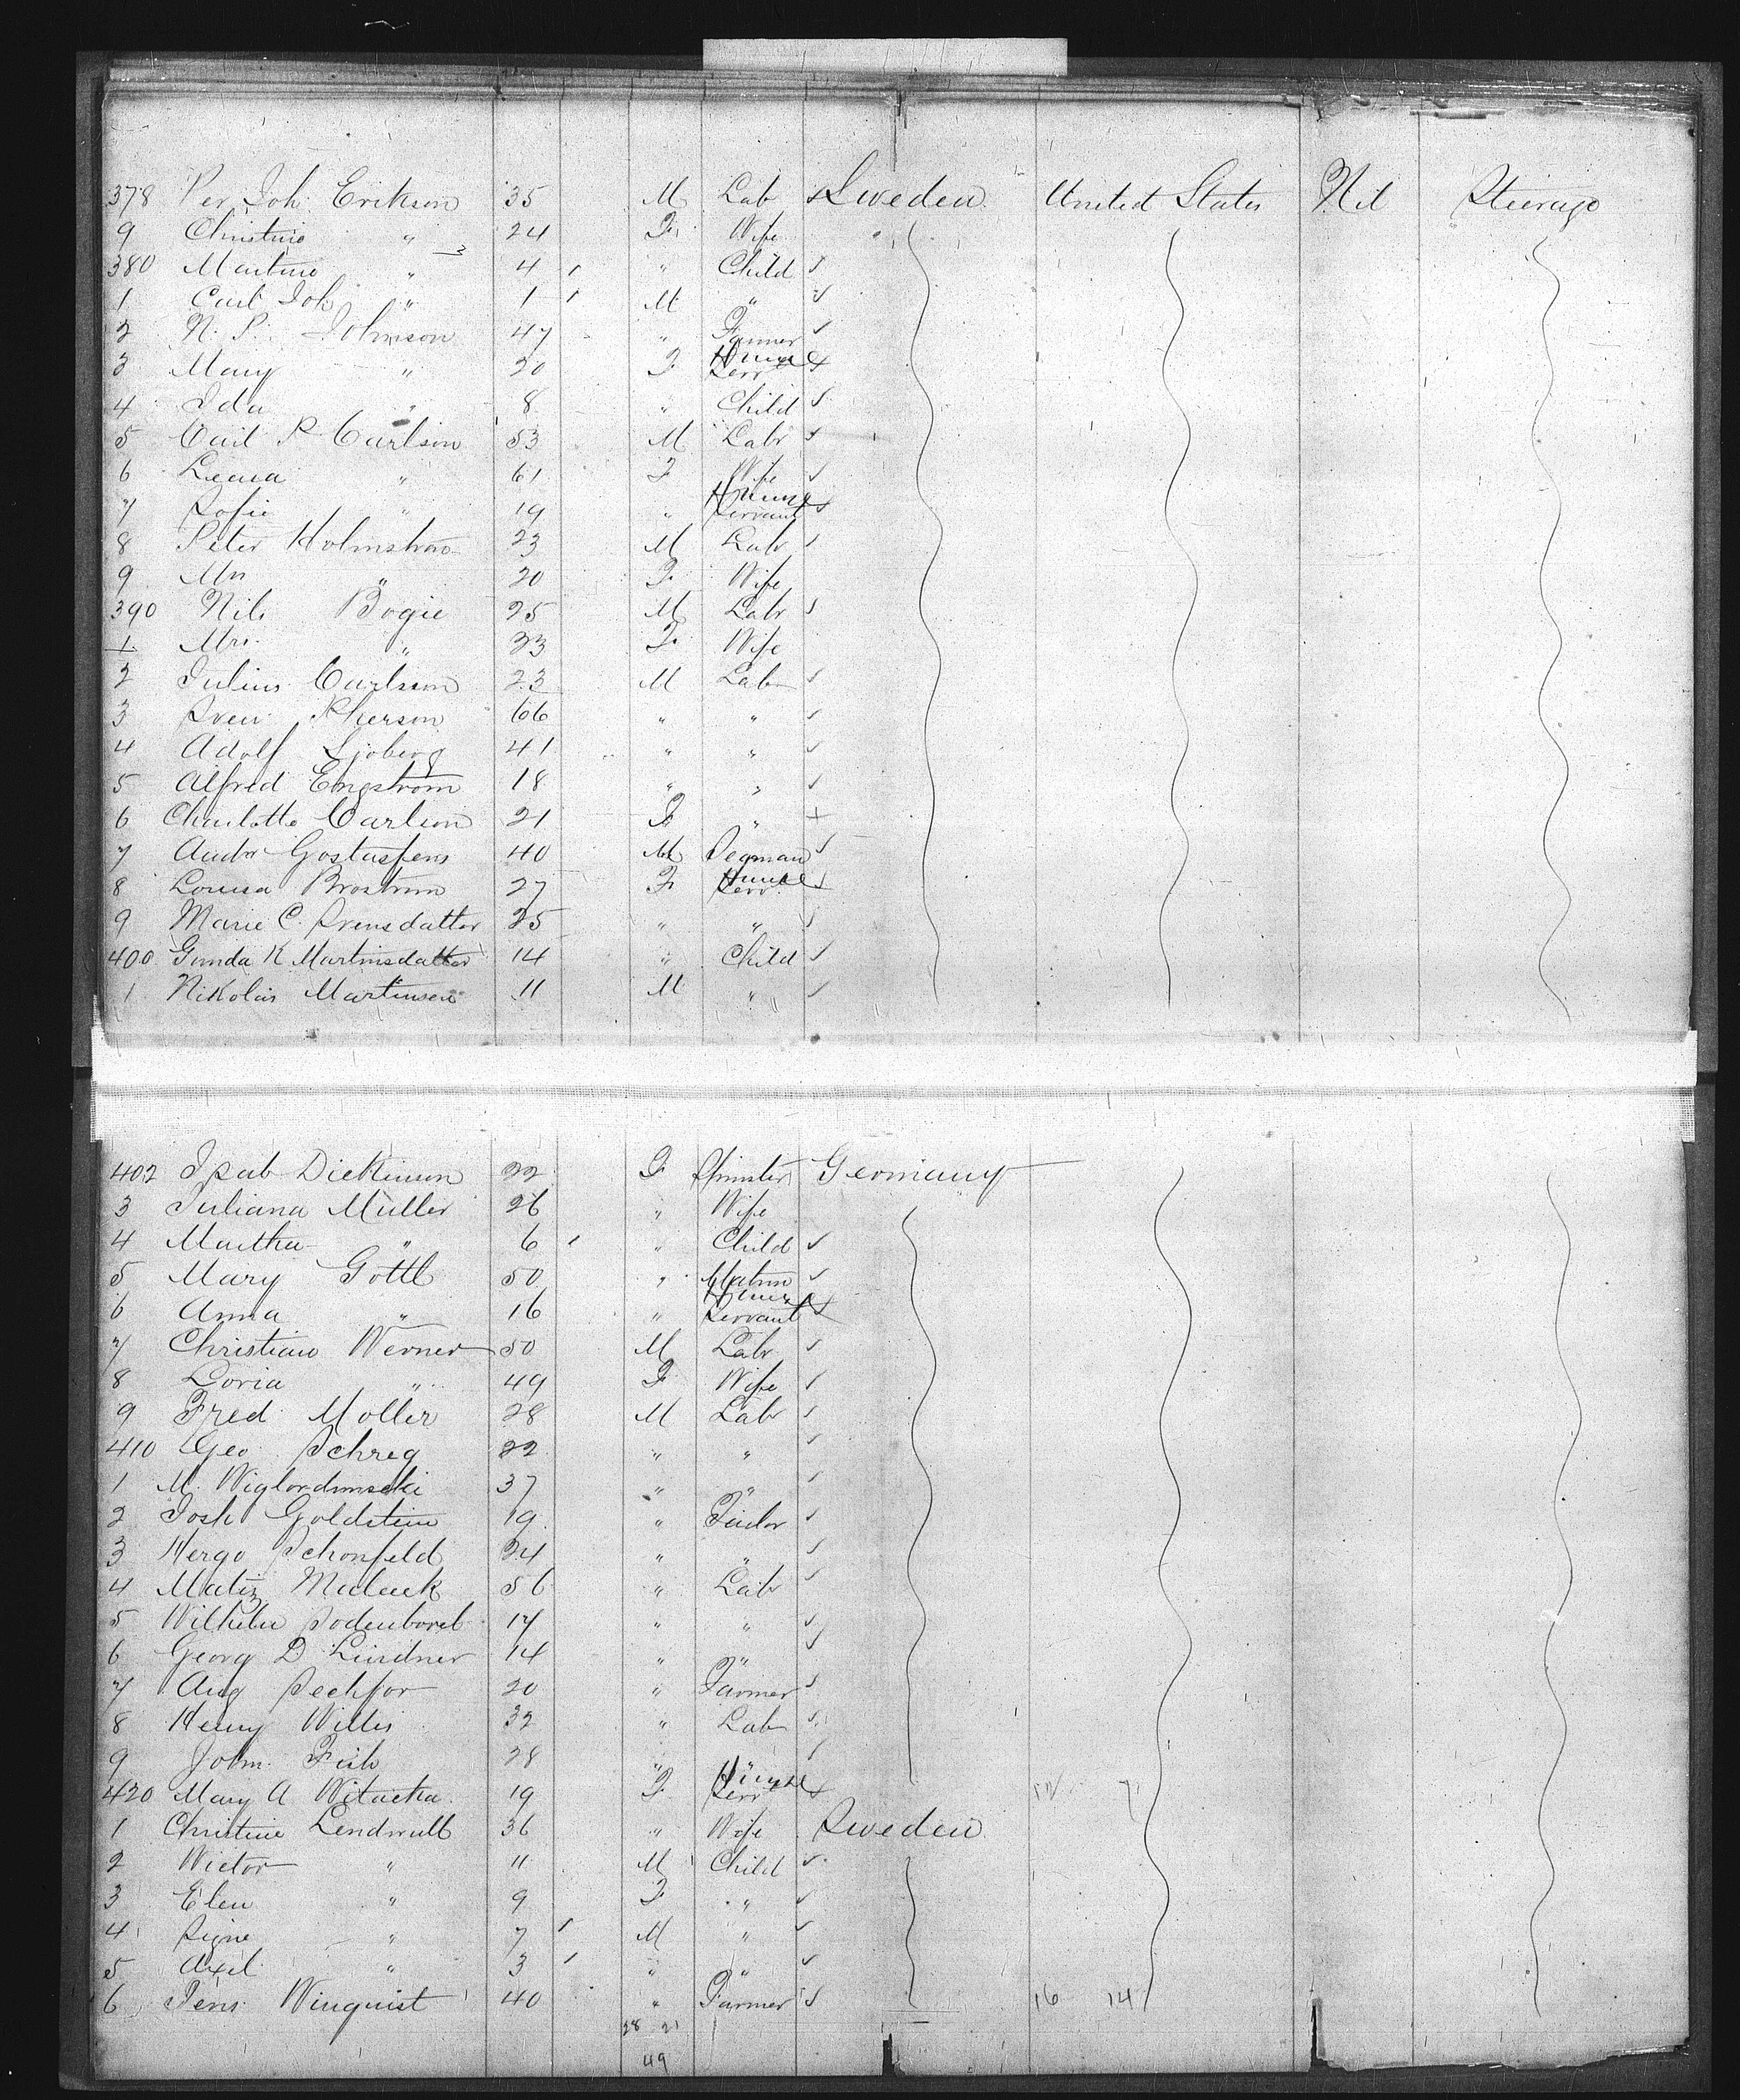 378 Per Joh. Erikson 35 M Lab Sweden United States Nil Steerage
9 Christine " 24 F. Wife
380 Martine " 4 " Child
1 Carl Joh " 1 M "
2 N. P. Johnson 47 " Farmer
3 Mary " 20 F House Serv
4 Ida " 8 " Child
5 Carl P Carlson 53 M Labr
6 Leana " 61 F Wife
7 Sofie " 19 " House Servant
8 Peter Holmstrom 23 M Labr
9 Mrs " 20 F. Wife
390 Nils Bogie 25 M Labr
1. Mrs. " 23 F. Wife
2 Julius Carlsson 23 M Lab
3 Sven 66 " "
4 Adolf Sjoberg 41 " "
5 Alfred Engstrom 18 " "
6 Charlotte Carlson 21 F "
7 Andr 40 M
8 Louisa Brostrom 27 F House Serv.
9 Marie C. Svensdatter 25 " "
400 Gunda K Martinsdatter 14 " Child
1 Nikolai Martinsen 11 M "
402 Dickinson 22 F Spinster Germany
3 Juliana Müller 26 " Wife
4 Martha " 6 " Child
5 Mary Gottl 50 " Matron
6 Anna " 16 " House Servant
7 Christian Werner 50 M Labr
8 Doria " 49 F Wife
9 Fred Moller 28 M Labr
410 Geo Schreg 22 " "
1 M. 37 " "
2 Josh Goldstein 19 "
3 Schonfeld 24 " "
4 Matiz 56 " Labr
5 Wilhelm 17 " "
6 Georg D Lindner 14 " "
7 Aug 20 " Farmer
8 Henry Willis 32 " Lab
9 John Fish 28 " "
420 Mary A Witacka 19 F House Serv
1 Christine Lendwall 36 " Wife Sweden
2 Wictor " 11 M Child
3 Elen " 9 F "
4 Signe " 7 M "
5 Axel " 3 " "
6 Jens Winquist 40 " Farmer 16 14
28 21
49